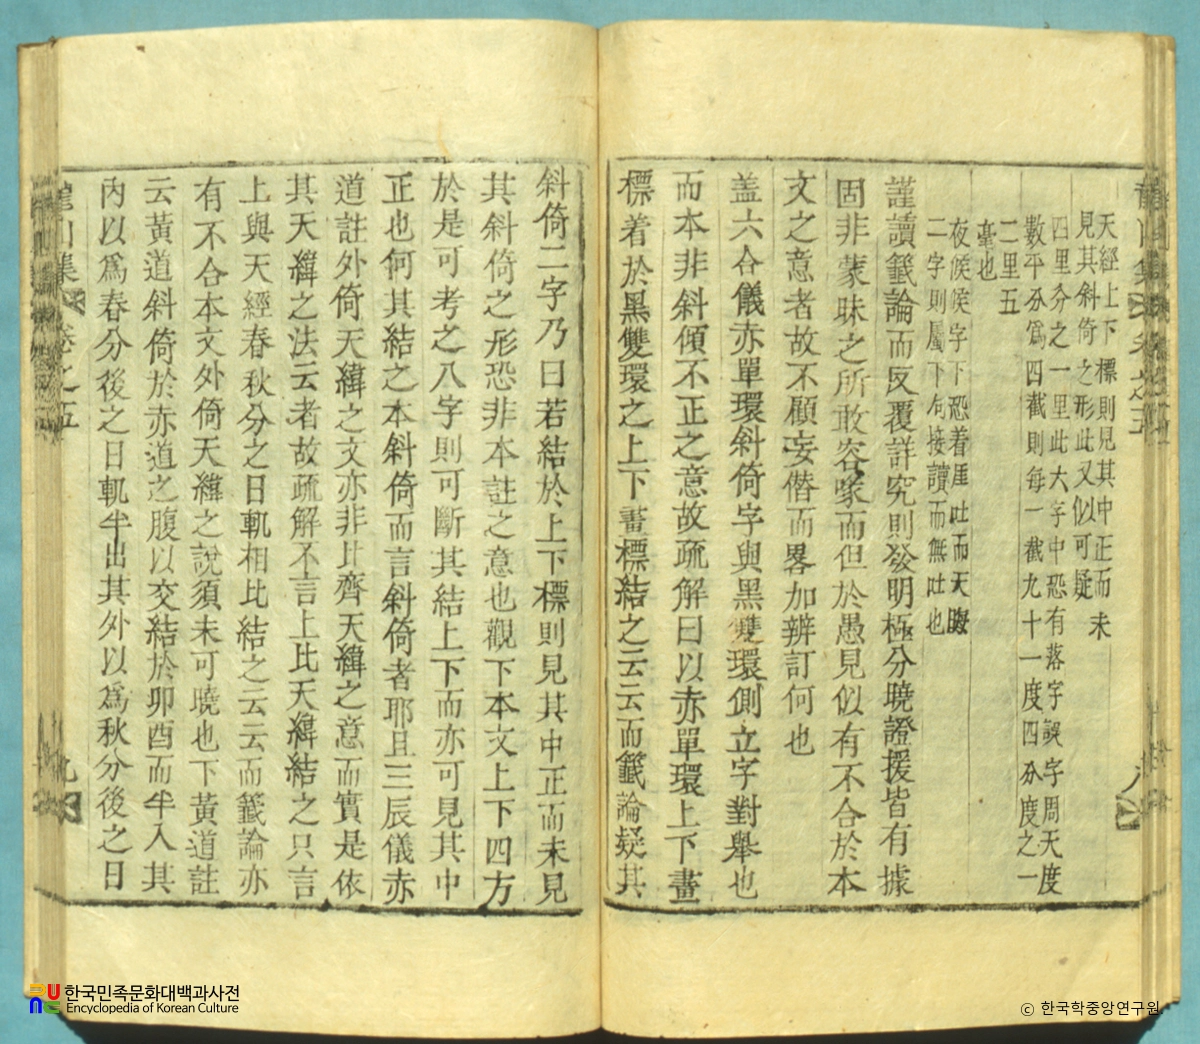 天經上下標則見其中正而未
見其斜倚之形此又似可疑
四里分之一里此大字中恐有落字誤字周天度
數平分爲四截則每一截九十一度四分度之一
二里五
毫也
夜候候字下恐着厓吐而天
二字則屬下句接讀而無吐也
謹讀籤論而反覆詳究則發明極分曉證援皆有據
固非蒙昧之所敢容喙而但於愚見似有不合於本
文之意者故不顧妄僭而畧加辨訂何也
盖六合儀赤單環斜倚字與黑雙環側立字對擧也
而本非斜傾不正之意故疏解曰以赤單環上下畫
標着於黑雙環之上下畫標結之云云而籤論疑其
斜倚二字乃曰若結於上下標則見其中正而未見
其斜倚之形恐非本註之意也觀下本文上下四方
於是可考之八字則可斷其結上下而亦可見其中
正也何其結之本斜倚而言斜倚者耶且三辰儀赤
道註外倚天緯之文亦非比齊天緯之意而實是依
其天緯之法云者故疏解不言上比天緯結之只言
上與天經春秋分之日軌相比結之云云而籤論亦
有不合本文外倚天緯之說須未可曉也下黃道註
云黃道斜倚於赤道之腹以交結於卯酉而半入其
內以爲春分後之日軌半出其外以爲秋分後之日
集 卷之五 九
한국민족문화대백과사전
Encyclopedia of Korean Culture
© 한국학중앙연구원